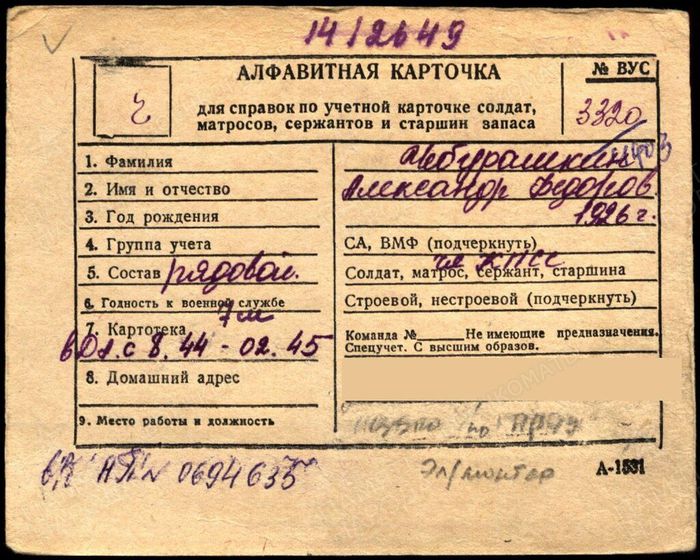 1412649
АЛФАВИТНАЯ КАРТОЧКА
№ ВУС
Ч
для справок по учетной карточке солдат,
матросов, сержантов и старшин запаса
3320
1. Фамилия Чебурашкин
2. Имя и отчество Александр Федоров
3. Год рождения 1926 г.
4. Группа учета СА, ВМФ (подчеркнуть)
чл КПСС
5. Состав рядовой. Солдат, матрос, сержант, старшина
6. Годность к военной службе Строевой, нестроевой (подчеркнуть)
7. Картотека
Команда № Не имеющие предназначения.
Спецучет. С высшим образов.
с 8.44 - 02.45
8. Домашний адрес
9. Место работы и должность
0694635
Эл/монтер
А-1531